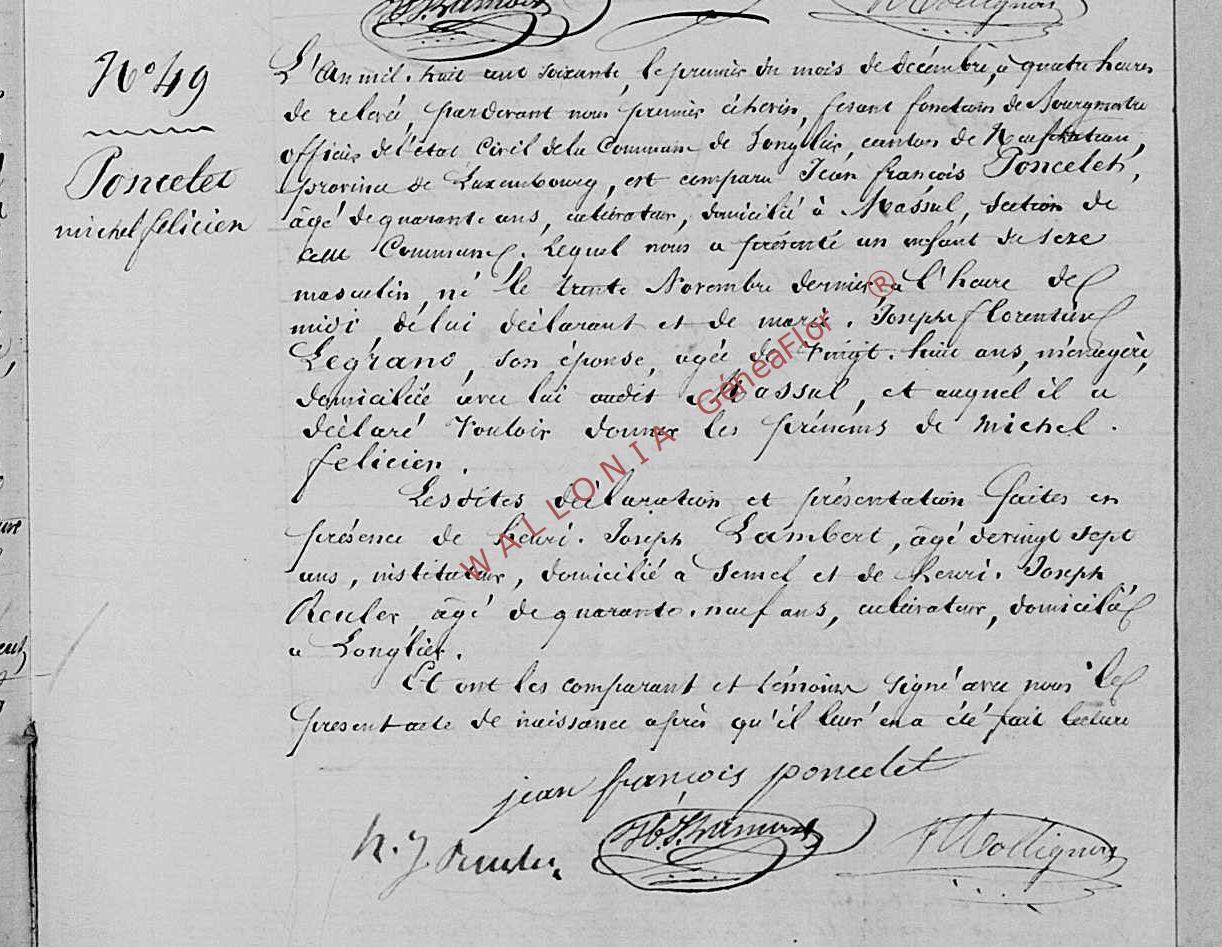 N° 49
Poncelet
michel felicien
L'an mil huit cent soixante, le premier du mois de décembre, à quatre heures
de relevé, pardevant nous premier échevin, fesant fonctions de Bourgmestre
officier de l'état civil de la Commune de Longlier, canton de Neufchateau,
province de Luxembourg, est comparu Jean françois Poncelet,
âgé de quarante ans, cultivateur, domicilié à Massul, section de
cette Commune. Lequel nous a présenté un enfant de sexe
masculin, né le trente Novembre dernier, à l'heure de
midi de lui déclarant et de marie. Josephe florentine
Legrand, son épouse, agée de vingt. huit ans, ménagère,
domiciliée avec lui audit Massul, et auquel il a
déclaré vouloir donner les prénoms de michel.
felicien.
Lesdites déclaration et présentation faites en
présence de henri. Joseph Lambert, âgé de vingt sept
ans, instituteur, domicilié à Semel et de henri. Joseph
Reuler, âgé de quarante. neuf ans, cultivateur, domicilié
a Longlier.
Et ont les comparant et témoins signé avec nous le
present acte de naissance après qu'il leur en a été fait lecture
jean françois poncelet
h. J. Reuler
WALLONIA GénéaFlor ®